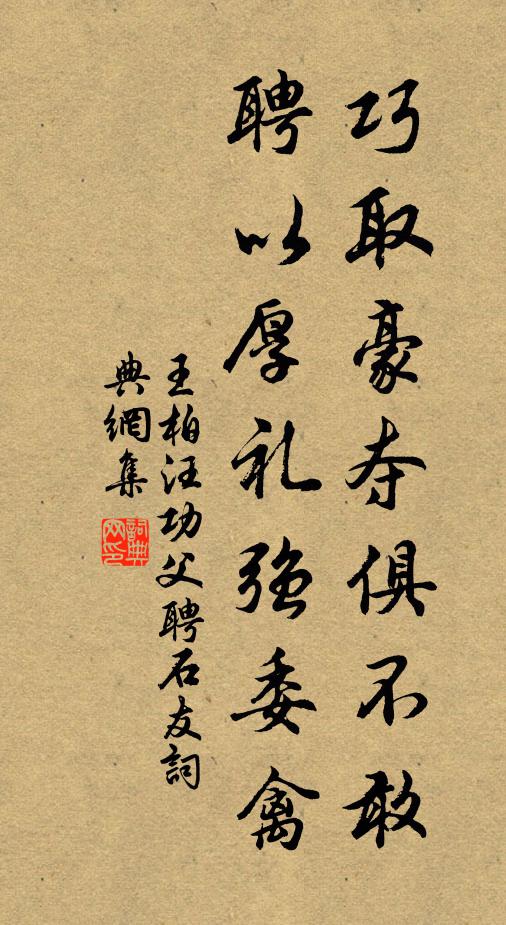 巧取豪夺俱不敢
聘以厚礼強委禽
王柏汪功父聘石友詞
典網集
詞典
网印